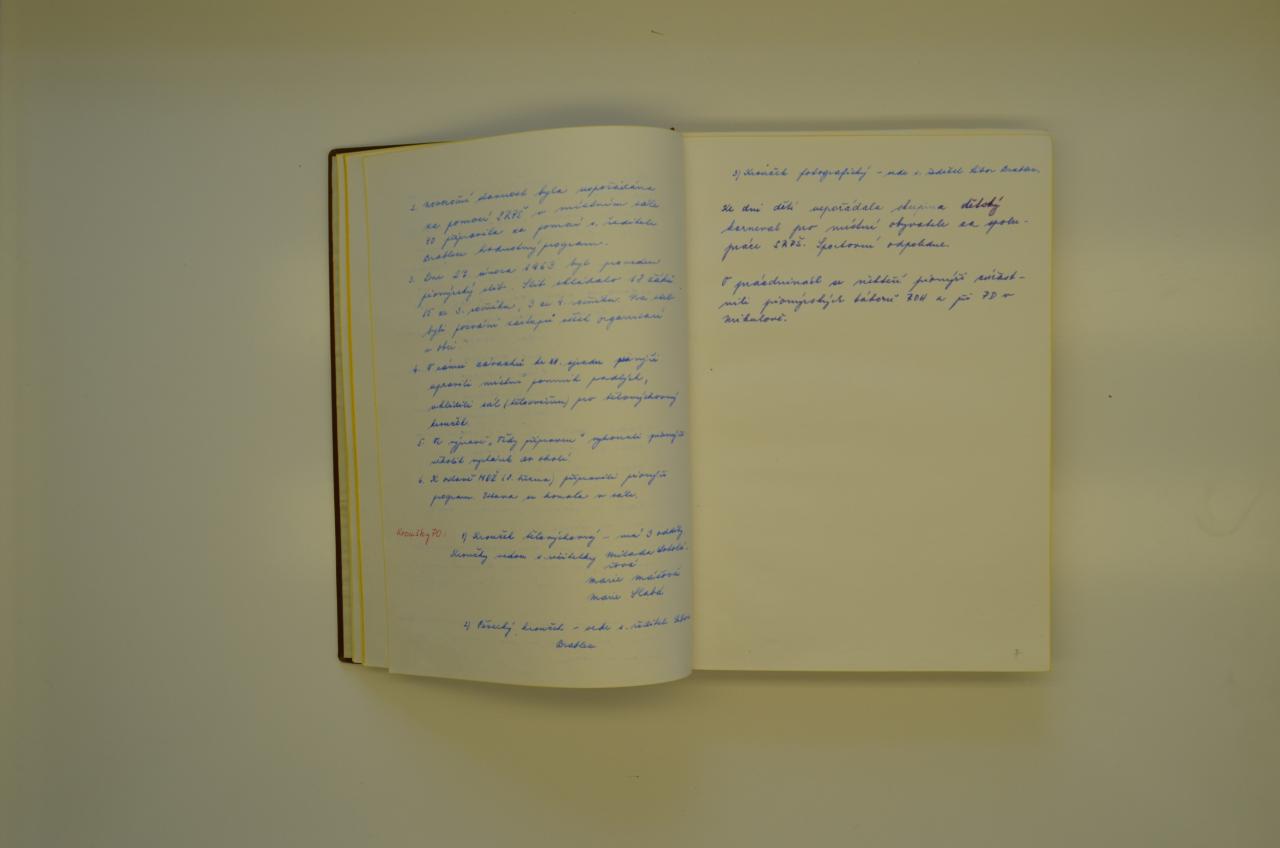 2. Novoroční slavnost byla uspořádána
za pomoci SRPŠ v místním sále
PO připravila za pomoci s. ředitele
Drablea hodnotný program.
3. Dne 27. února 1963 byl proveden
pionýrský slib. Slib skládalo 18 žáků
15 ze 3. ročníku, 3 ze 4. ročníku. Na slib
byli pozváni zástupci všech organisací
v obci.
4. V rámci závazků ke sjezdu pionýři
upravili místní pomník padlých,
uklidili sál (tělocvičnu) pro tělovýchovný
kroužek.
5. Ve výpravě "Vždy připraven" vykonali pionýři
několik vycházek do okolí.
6. K oslavě MDŽ (8. března) připravili pionýři
program. Oslava se konala v sále.
Kroužky PO: 1) Kroužek tělovýchovný – má 3 oddíly
Kroužky vedou s. učitelky Milada
Marie
Marie Slabá
2) Pěvecký kroužek – vede s. ředitel Libor
Drablea
3) Kroužek fotografický – vede s. ředitel Libor Drablea.
Ke dni dětí uspořádala skupina dětský
karneval pro místní obyvatele za spolu-
práce SRPŠ. Sportovní odpoledne.
O prázdninách se někteří pionýři zúčast-
nili pionýrských táborů ROH a při PD v
Mikulově.